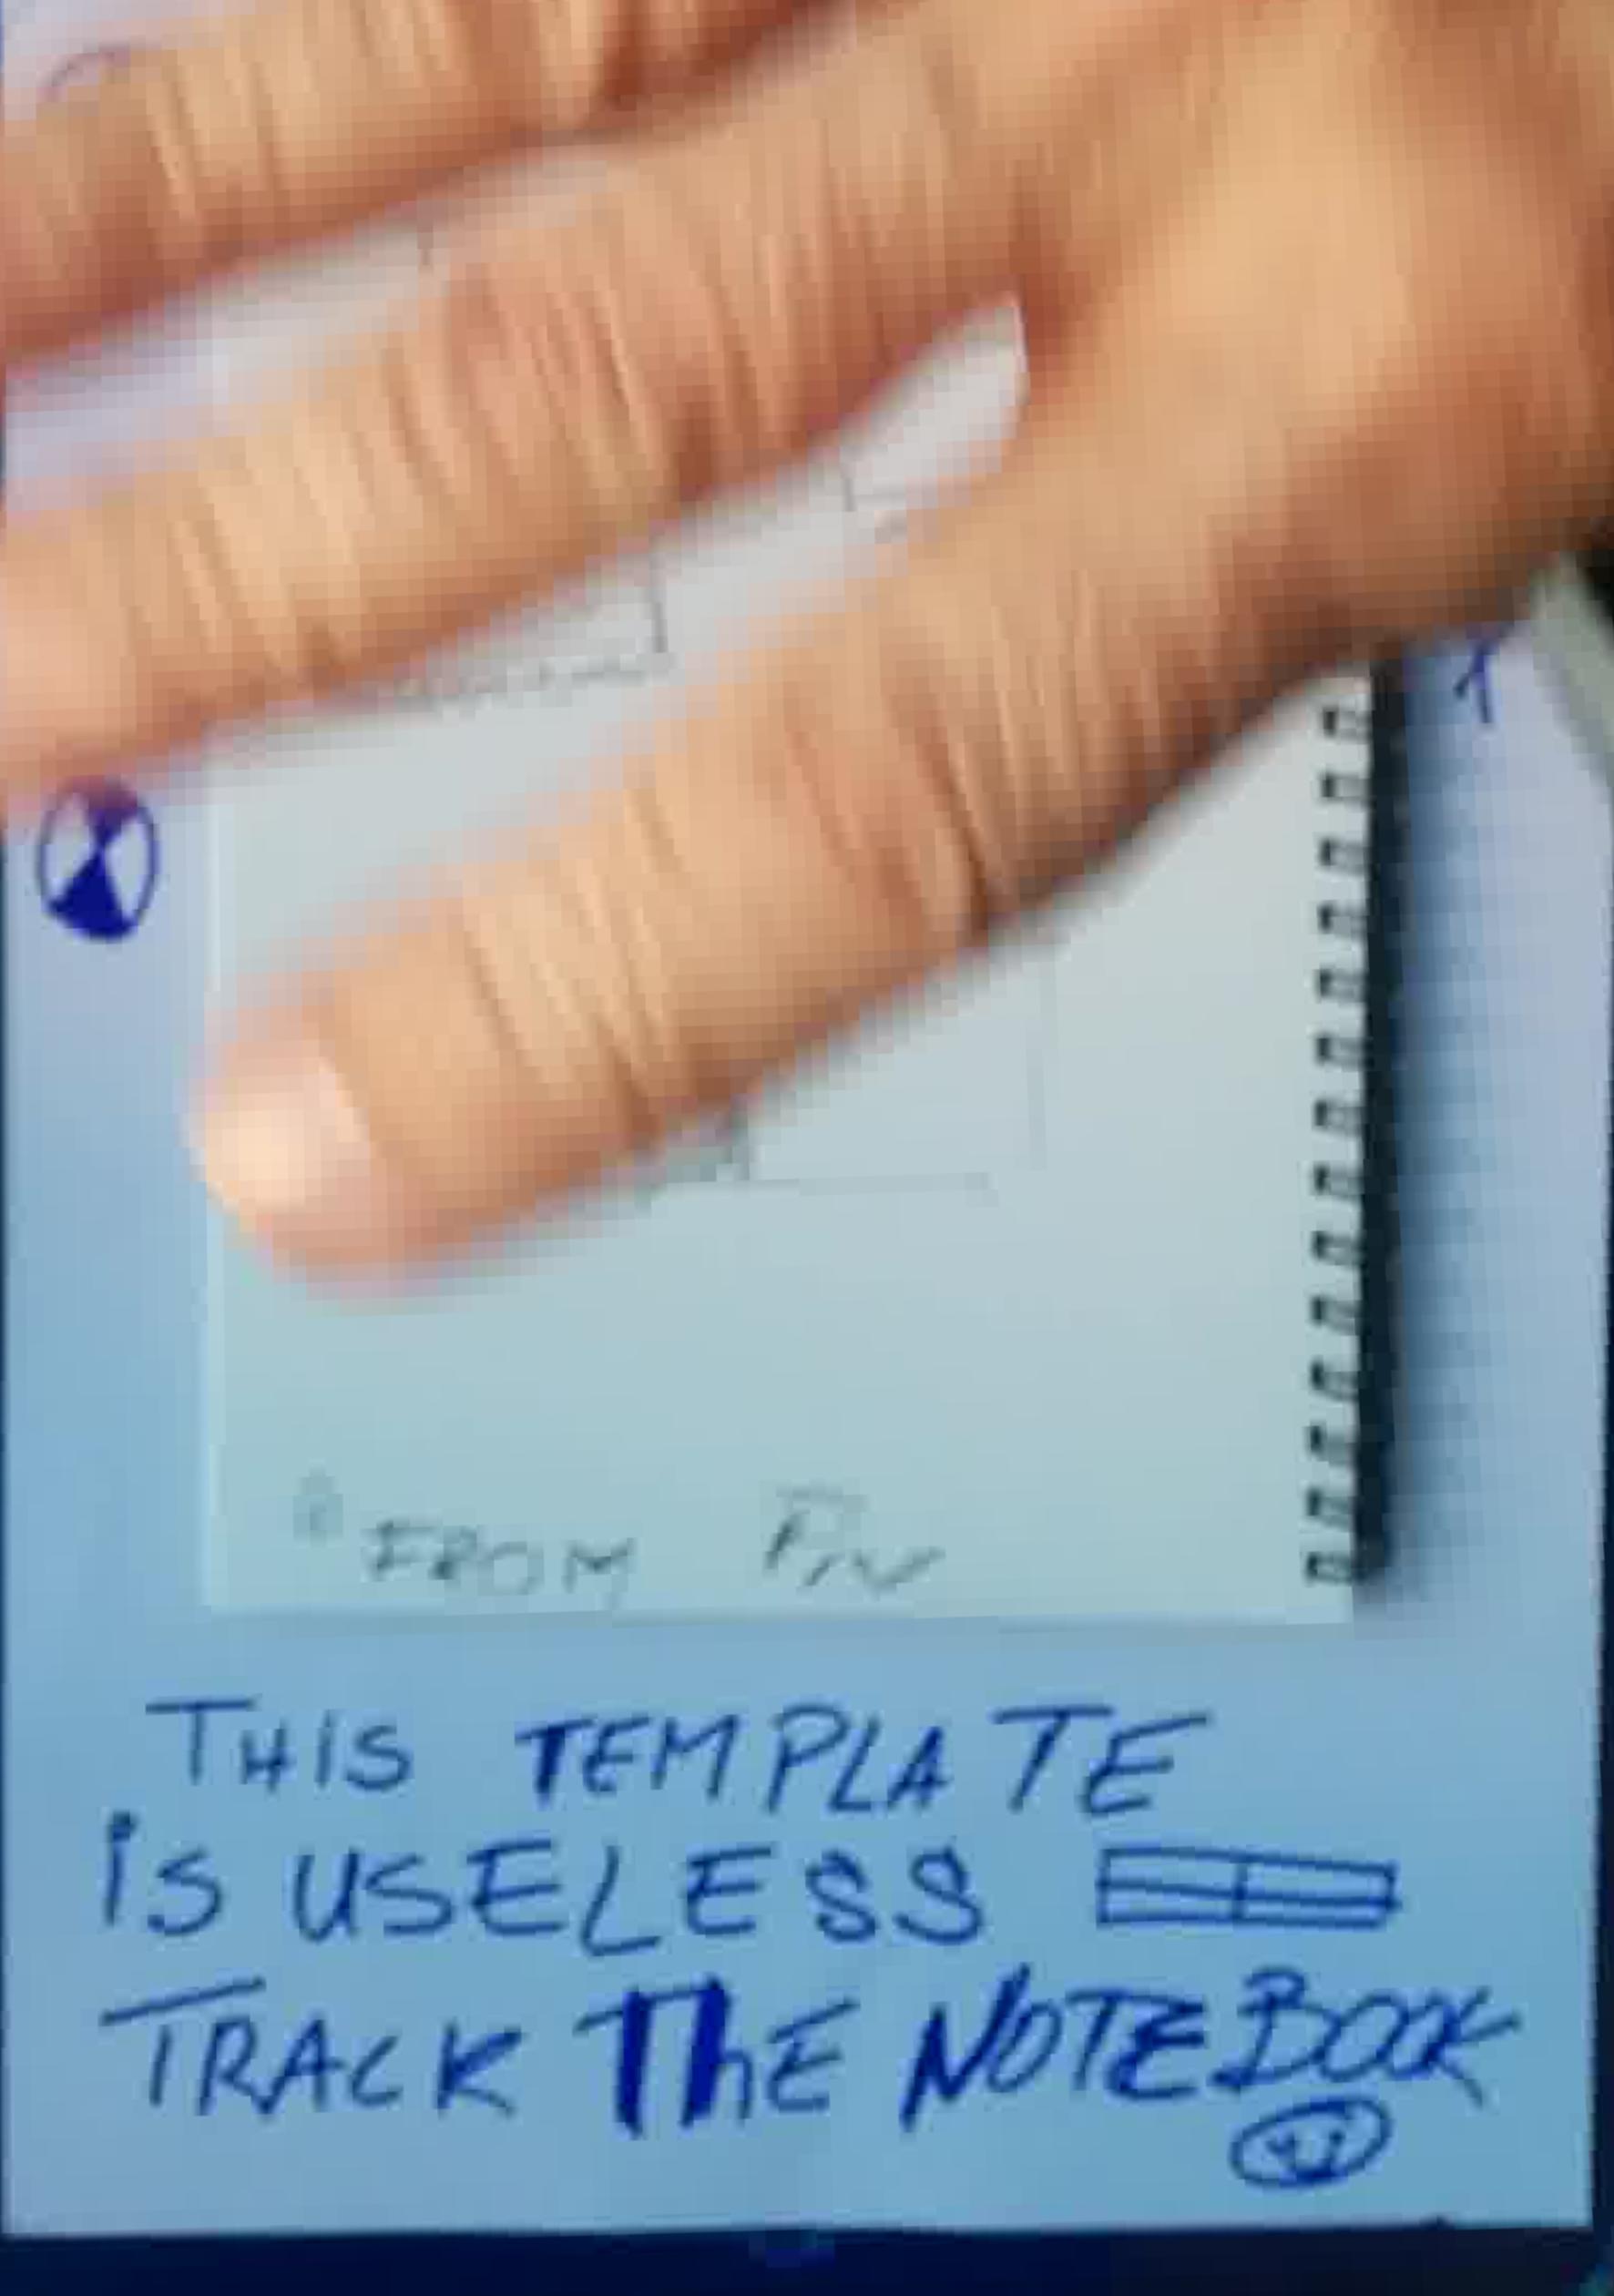 FROM PIN
THIS TEMPLATE
iS USELESS
TRACK ThE NOTEBOOK